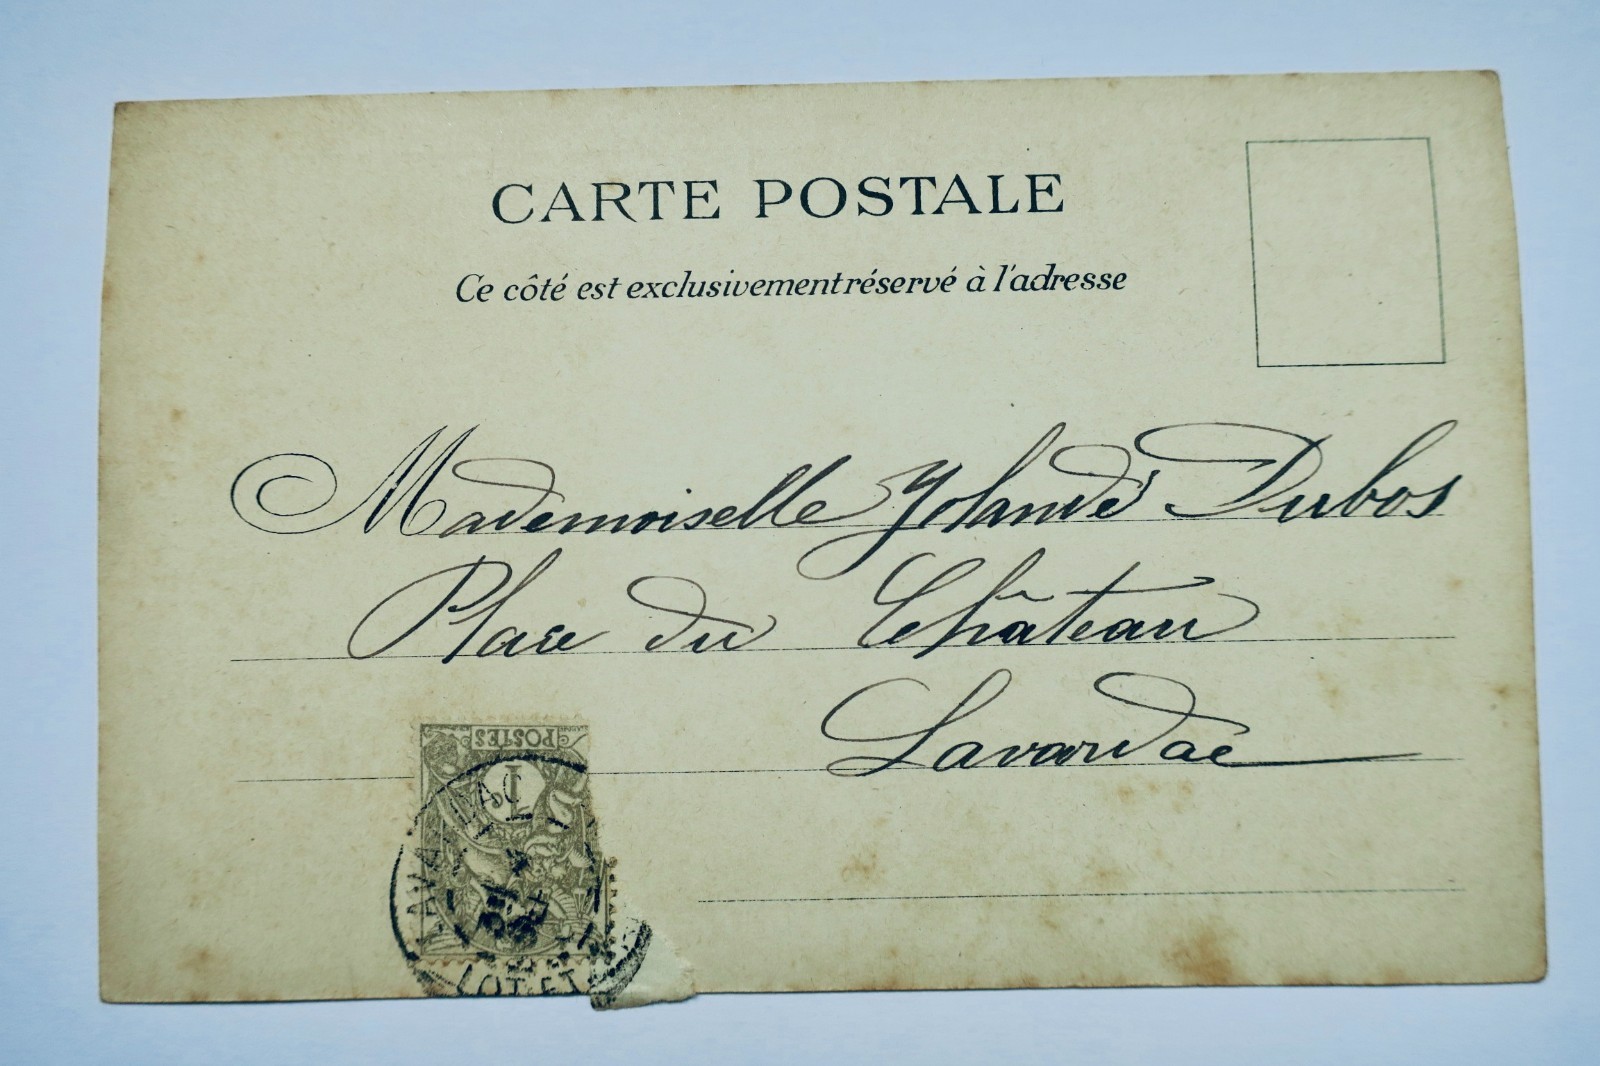 CARTE POSTALE
Ce côté est exclusivement réservé à l'adresse
Mademoiselle Yolande Dubos
Place du Château
Lavardac
POSTES
1
LAVARDAC
LOT-ET-